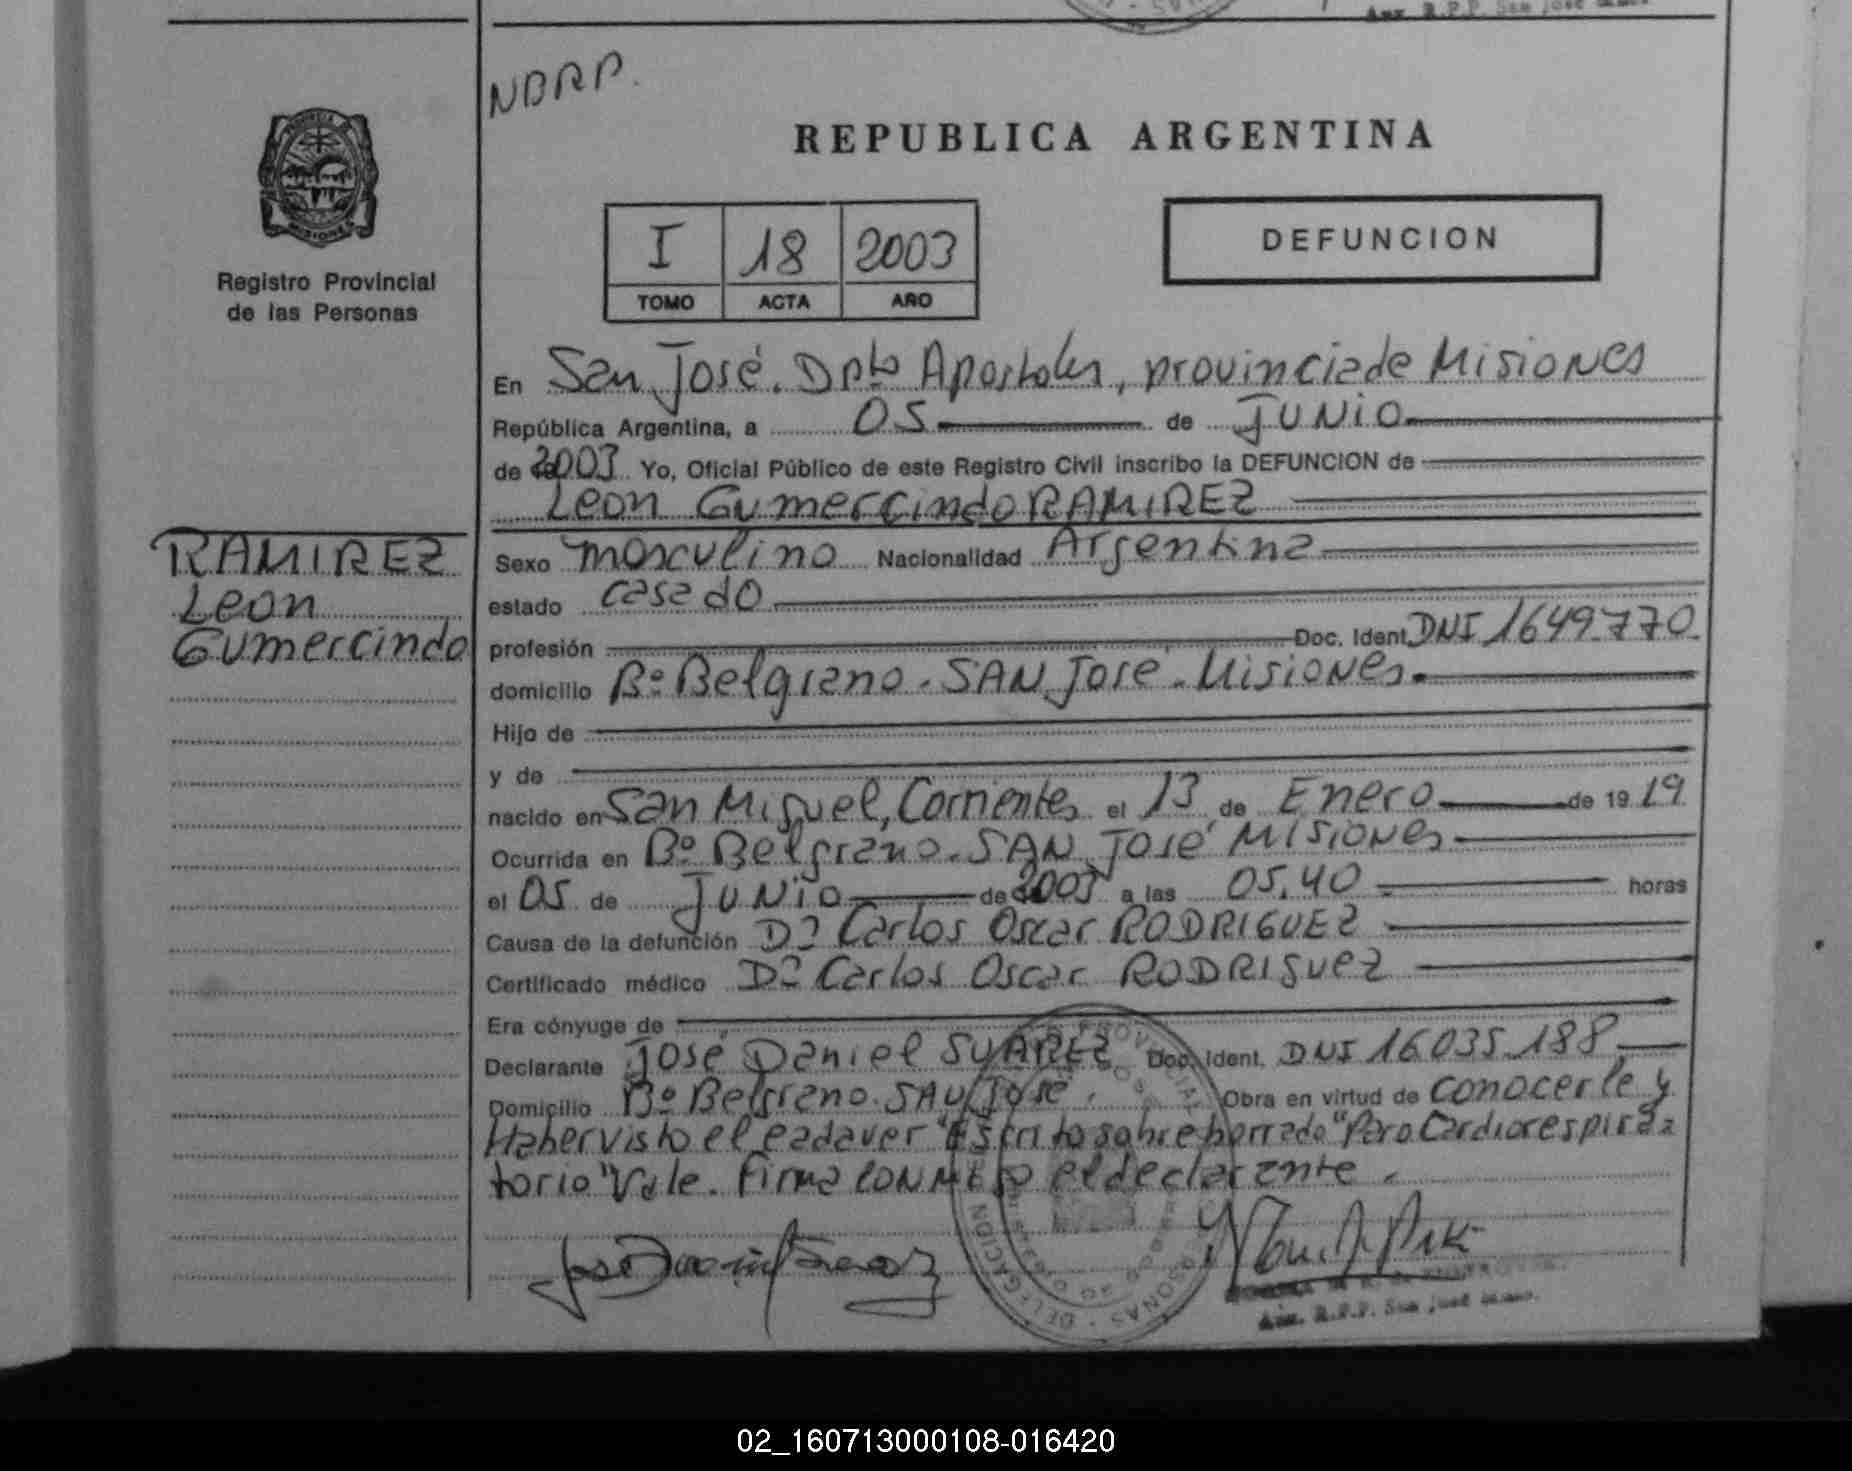 Aux. R.P.P. San José
NBRP.
REPUBLICA ARGENTINA
PROVINCIA DE
MISIONES
Registro Provincial
de las Personas
I 18 2003
TOMO ACTA AÑO
DEFUNCION
En San José. Dpto Apostoles, provincia de Misiones
República Argentina, a 05 de JUNIO
de 2003 Yo, Oficial Público de este Registro Civil inscribo la DEFUNCION de
Leon Gumercindo RAMIREZ
RAMIREZ
Leon
Gumercindo
Sexo masculino Nacionalidad Argentina
estado casado
profesión Doc. Ident. DNI 1649.770
domicilio Bº Belgrano. SAN José. Misiones.
Hijo de
y de
nacido en San Miguel, Corrientes el 13 de Enero de 1919
Ocurrida en Bº Belgrano. SAN José Misiones
el 05 de JUNIO de 2003 a las 05,40 horas
Causa de la defunción Dº Carlos Oscar RODRIGUEZ
Certificado médico Dº Carlos Oscar RODRIGUEZ
Era cónyuge de
Declarante José Daniel SUAREZ Doc. Ident. DNI 16.035.188
Domicilio Bº Belgrano. SAN José. Obra en virtud de conocerle y
Haber visto el cadaver "Escrito sobre borrado" "Paro Cardiorespira
torio" Vale. Firma conmigo el declarante.
Aux. R.P.P. San José
02_160713000108-016420